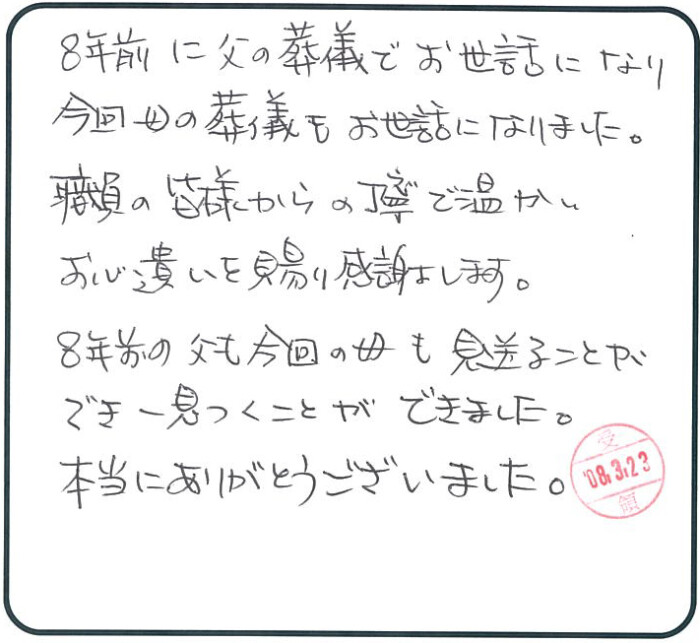 8年前に父の葬儀でお世話になり
今回母の葬儀もお世話になりました。
職員の皆様からの丁寧で温かい
お心遣いを賜り感謝します。
8年前の父も今回の母も見送ることが
でき一見つくことができました。
本当にありがとうございました。
受
'08.3.23
領